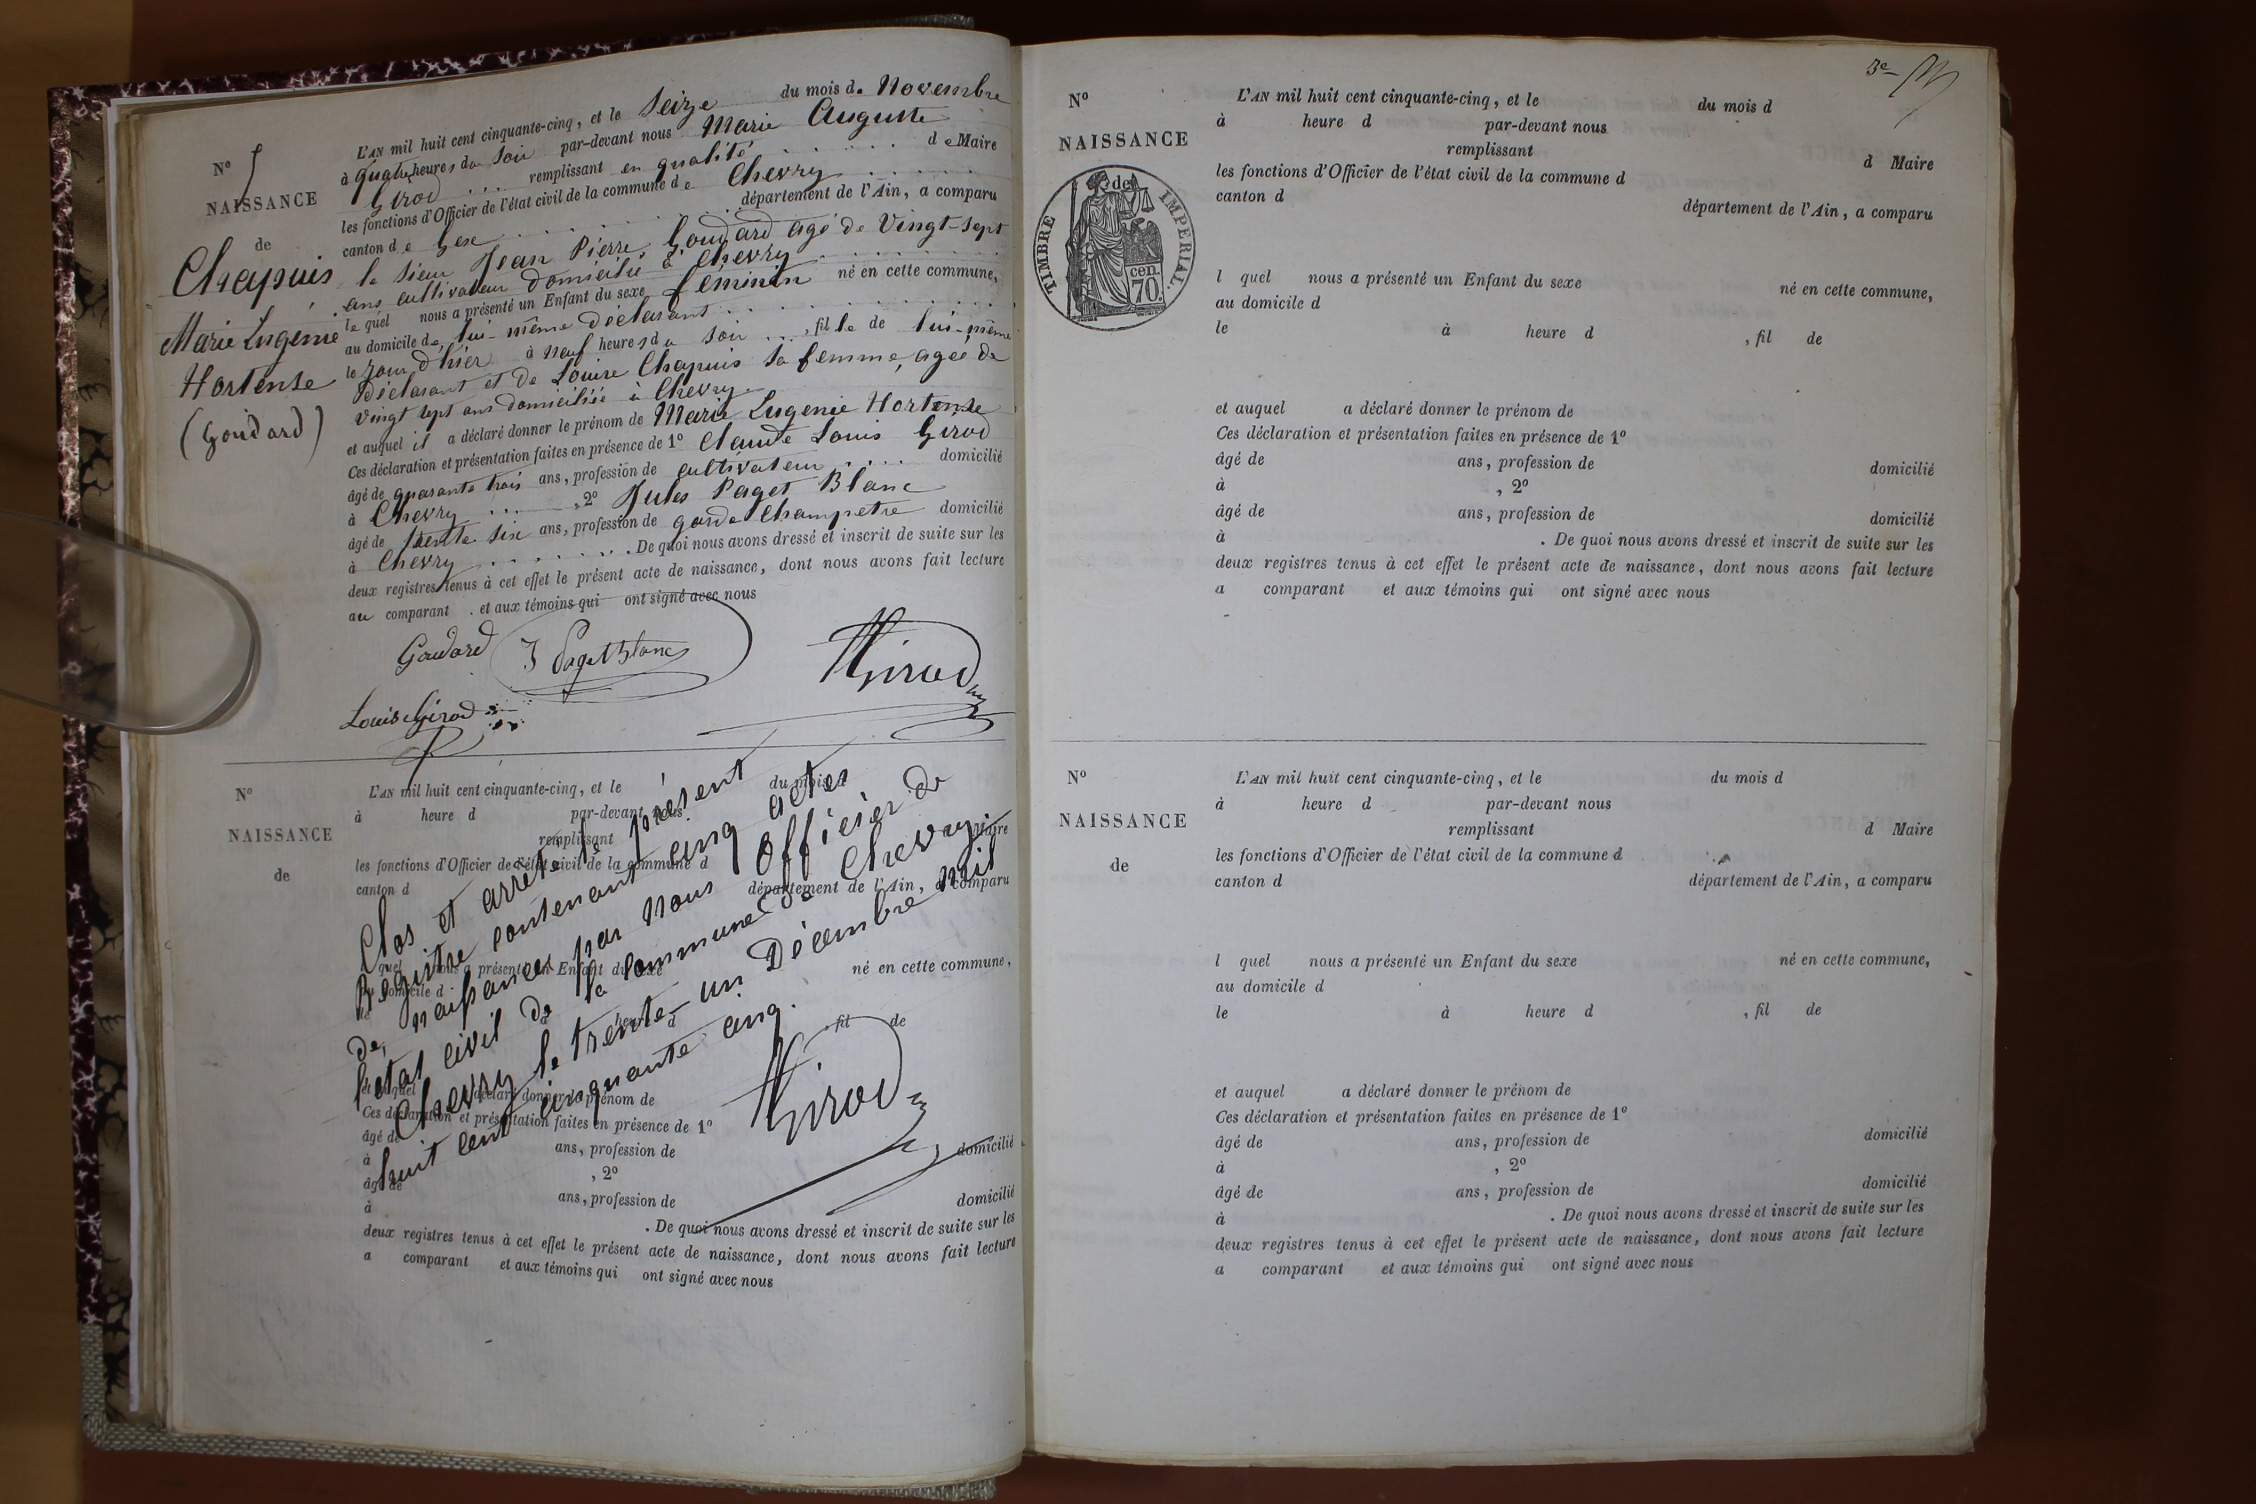 N° 5
NAISSANCE
de
Chapuis
Marie Eugénie
Hortense
(Goudard)
L'AN mil huit cent cinquante-cinq, et le Seize du mois de Novembre
à quatre heures du Soir par-devant nous Marie Auguste
Girod ... remplissant en qualité ...... de Maire
les fonctions d'Officier de l'état civil de la commune de Chevry ......
canton de Gex ...... département de l'Ain, a comparu
le sieur Jean Pierre Goudard agé de Vingt-sept
ans cultivateur domicilié à Chevry ......
le quel nous a présenté un Enfant du sexe féminin né en cette commune,
au domicile de lui-même déclarant ......
le jour d'hier à neuf heures du soir ... , fille de lui-même
Déclarant et de Louise Chapuis sa femme, agée de
vingt sept ans domiciliée à Chevry
et auquel il a déclaré donner le prénom de Marie Eugenie Hortense
Ces déclaration et présentation faites en présence de 1° Claude Louis Girod
âgé de quarante trois ans, profession de cultivateur .... domicilié
à Chevry ... , 2° Jules Paget Blanc
âgé de trente six ans, profession de garde champetre domicilié
à Chevry ....... De quoi nous avons dressé et inscrit de suite sur les
deux registres tenus à cet effet le présent acte de naissance, dont nous avons fait lecture
au comparant . et aux témoins qui ont signé avec nous
Goudard J Paget blanc Girod
Louis Girod
N°
NAISSANCE
de
L'AN mil huit cent cinquante-cinq, et le du mois d
à heure d par-devant nous
remplissant d Maire
les fonctions d'Officier de l'état civil de la commune d
canton d département de l'Ain, a comparu
l quel nous a présenté un Enfant du sexe né en cette commune,
au domicile d
le à heure d , fil de
et auquel a déclaré donner le prénom de
Ces déclaration et présentation faites en présence de 1°
âgé de ans, profession de domicilié
à , 2°
âgé de ans, profession de domicilié
à . De quoi nous avons dressé et inscrit de suite sur les
deux registres tenus à cet effet le présent acte de naissance, dont nous avons fait lecture
a comparant et aux témoins qui ont signé avec nous
Clos et arrêté le présent
Registre contenant cinq actes
de naissances par nous Officier de
l'état civil de la commune de Chevry.
Chevry le trente-un Décembre mil
huit cent cinquante cinq.
Girod
3e
N°
NAISSANCE
TIMBRE IMPERIAL
de
cen.
70.
L'AN mil huit cent cinquante-cinq, et le du mois d
à heure d par-devant nous
remplissant d Maire
les fonctions d'Officier de l'état civil de la commune d
canton d département de l'Ain, a comparu
l quel nous a présenté un Enfant du sexe né en cette commune,
au domicile d
le à heure d , fil de
et auquel a déclaré donner le prénom de
Ces déclaration et présentation faites en présence de 1°
âgé de ans, profession de domicilié
à , 2°
âgé de ans, profession de domicilié
à . De quoi nous avons dressé et inscrit de suite sur les
deux registres tenus à cet effet le présent acte de naissance, dont nous avons fait lecture
a comparant et aux témoins qui ont signé avec nous
N°
NAISSANCE
de
L'AN mil huit cent cinquante-cinq, et le du mois d
à heure d par-devant nous
remplissant d Maire
les fonctions d'Officier de l'état civil de la commune d
canton d département de l'Ain, a comparu
l quel nous a présenté un Enfant du sexe né en cette commune,
au domicile d
le à heure d , fil de
et auquel a déclaré donner le prénom de
Ces déclaration et présentation faites en présence de 1°
âgé de ans, profession de domicilié
à , 2°
âgé de ans, profession de domicilié
à . De quoi nous avons dressé et inscrit de suite sur les
deux registres tenus à cet effet le présent acte de naissance, dont nous avons fait lecture
a comparant et aux témoins qui ont signé avec nous